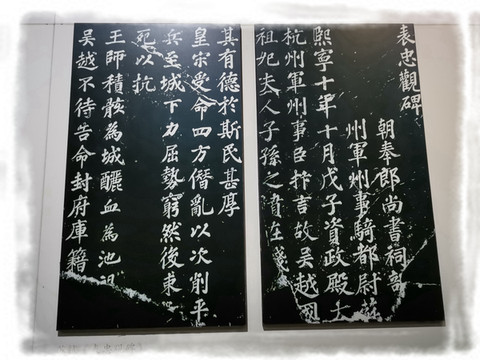 表忠觀碑
朝奉郎尚書祠部
州軍州事騎都尉
熙寧十年十月戊子資政殿大
杭州軍州事臣抃言故吳越國
祖妣夫人子孫之墳在錢
其有德於斯民甚厚
皇宋受命四方僭亂以次削平
兵至城下力屈勢窮然後束
死以抗
王師積骸為城釃血為池
吳越不待告命封府庫籍